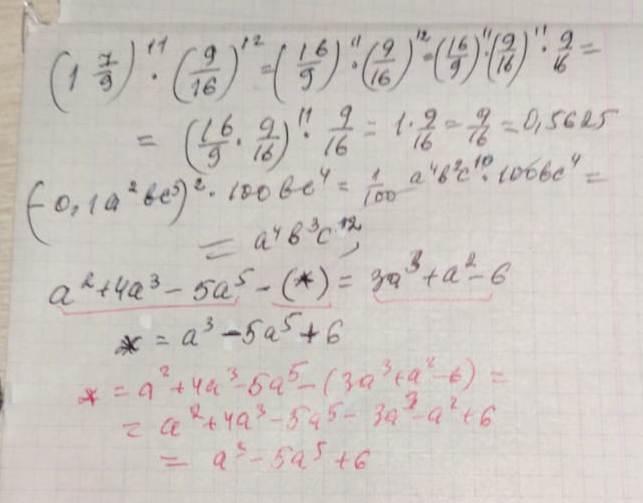 (1 7/9)^11 · (9/16)^12 = (16/9)^11 · (9/16)^12 = (16/9)^11 · (9/16)^11 · 9/16 =
= (16/9 · 9/16)^11 · 9/16 = 1 · 9/16 = 9/16 = 0,5625
(-0,1a²bc⁵)² · 100bc⁴ = 1/100 a⁴b²c¹⁰ · 100bc⁴ =
= a⁴b³c¹²,
a² + 4a³ - 5a⁵ - (*) = 3a³ + a² - 6
* = a³ - 5a⁵ + 6
* = a² + 4a³ - 5a⁵ - (3a³ + a² - 6) =
= a² + 4a³ - 5a⁵ - 3a³ - a² + 6
= a³ - 5a⁵ + 6